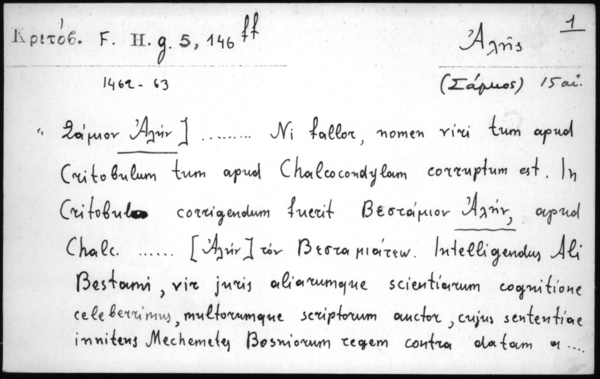 Κριτόβ. F. H. g. 5, 146 ff
Ἀλῆς 1
1462-63
(Σάμιος) 15 αἰ.
" Σάμιον Ἀλήν] ......... Ni fallor, nomen viri tum apud
Critobulum tum apud Chalcocondylam corruptum est. In
Critobulo corrigendum fuerit Βεστάμιον Ἀλήν, apud
Chalc. ...... [Ἀλήν] τόν Βεσταμιάτεω. Intelligendus Ali
Bestami, vir juris aliarumque scientiarum cognitione
celeberrimus, multorumque scriptorum auctor, cujus sententiae
innitens Mechemetes Bosniorum regem contra datam